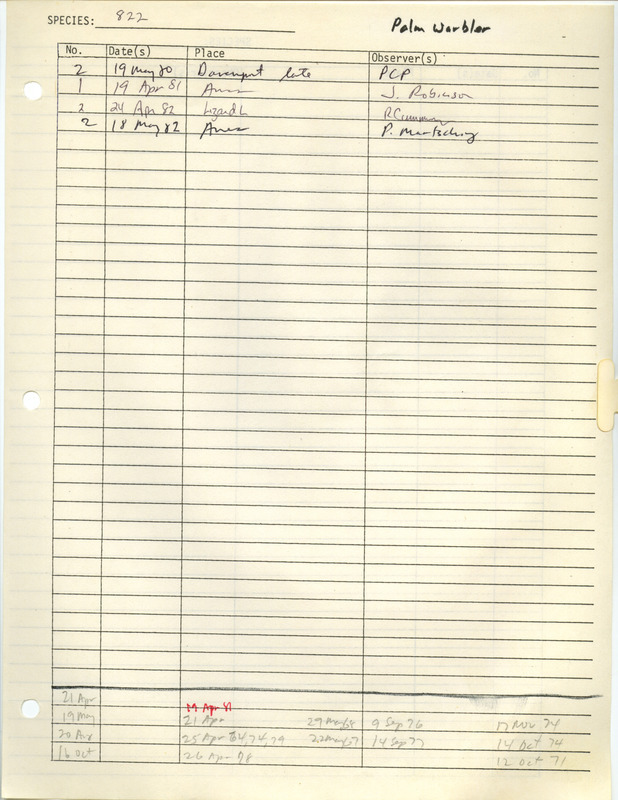 SPECIES: 822
Palm Warbler
No. Date(s) Place Observer(s)
2 19 May 80 Davenport late PCP
1 19 Apr 81 Ames J. Robinson
2 24 Apr 82 Lizard L R Cummins
2 18 May 82 Ames P. Martsching
21 Apr
19 Apr 81
19 May 21 Apr 29 May 68 9 Sep 76 17 Nov 74
20 Aug 25 Apr 64, 74, 79 22 May 67 14 Sep 77 14 Oct 74
16 Oct 26 Apr 78 12 Oct 71